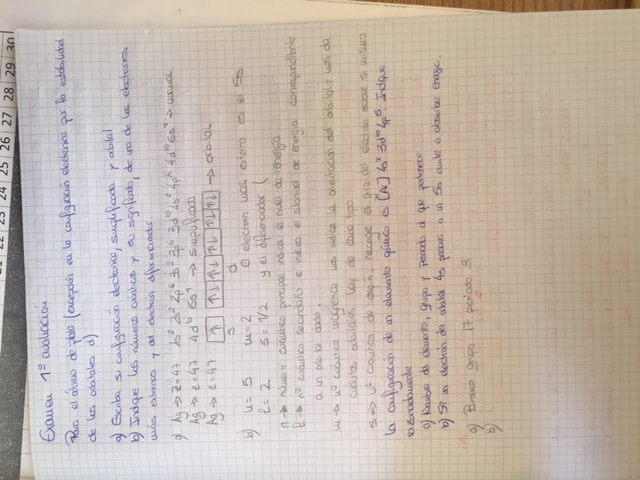 22 23 24 25 26 27 28 29 30
Examen 1ª evaluación
Para el átomo de plata (excepción en la configuración electrónica por la estabilidad
de los orbitales d)
a) Escriba su configuración electrónica, simplificada y orbital
b) Indique los números cuánticos y su significado, de uno de los electrones
más externos y del electrón diferenciador.
a) Ag → z=47 1s² 2s² 2p⁶ 3s² 3p⁶ 3d¹⁰ 4s² 4p⁶ 4d¹⁰ 5s¹ →
Ag → z=47 4d¹⁰ 5s¹ → simplificada
Ag → z=47 ↑ ↑↓ ↑↓ ↑↓ ↑↓ ↑↓ → orbital
s d
b) n = 5 m = 2 El electron más externo es el 5s
l = 2 s = 1/2 y el diferenciador (
n → número cuántico principal indica el nivel de energía
l → nº cuántico secundario e indica el subnivel de energía correspondiente
a un orbital dado.
m → nº cuántico magnético nos indica la orientación del orbital, nos da
cuántos orbitales hay de cada tipo
s → nº cuántico de espín, recoge el giro del electrón sobre si mismo
La configuración de un elemento químico es [Ar] 4s² 3d¹⁰ 4p⁵ Indique
razonadamente
a) Nombre del elemento, grupo y periodo al que pertenece
b) Si un electrón del orbital 4s promociona a un 5s emite o absorbe energía.
a) Bromo grupo 17 periodo 3
b)